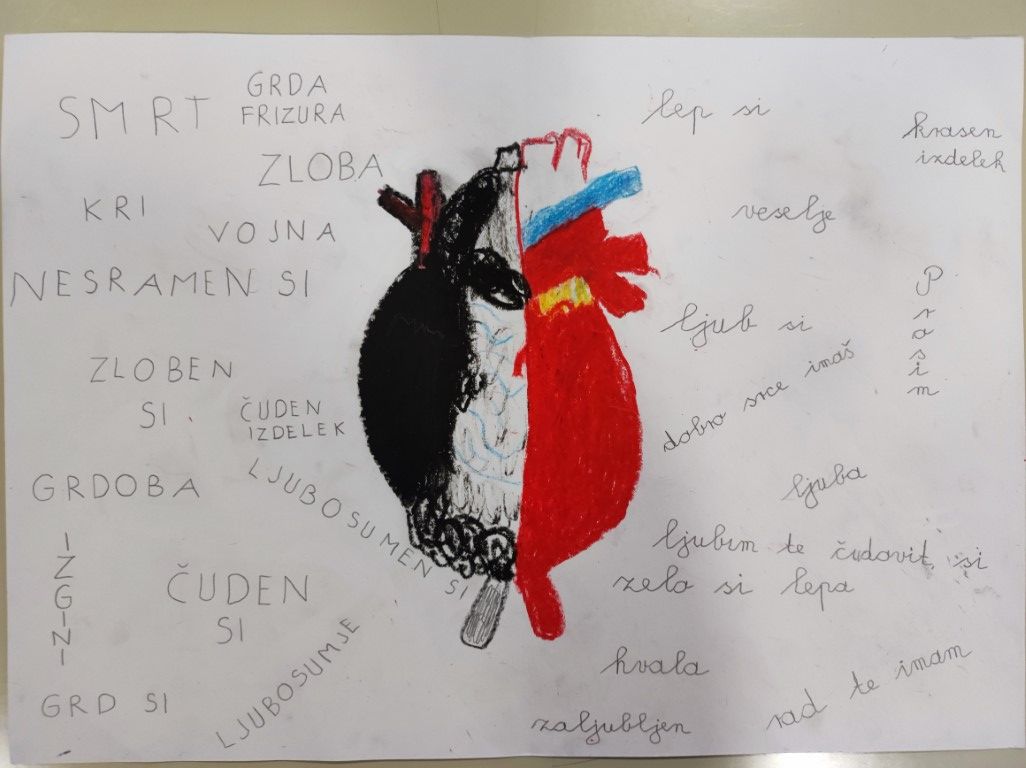 SMRT
GRDA
FRIZURA
ZLOBA
KRI
VOJNA
NESRAMEN SI
ZLOBEN
SI
ČUDEN
IZDELEK
LJUBOSUMEN SI
GRDOBA
IZGINI
ČUDEN
SI
LJUBOSUMJE
GRD SI
lep si
krasen
izdelek
veselje
Prosim
ljub si
dobro srce imaš
ljuba
ljubim te čudovit si
zelo si lepa
hvala
rad te imam
zaljubljen